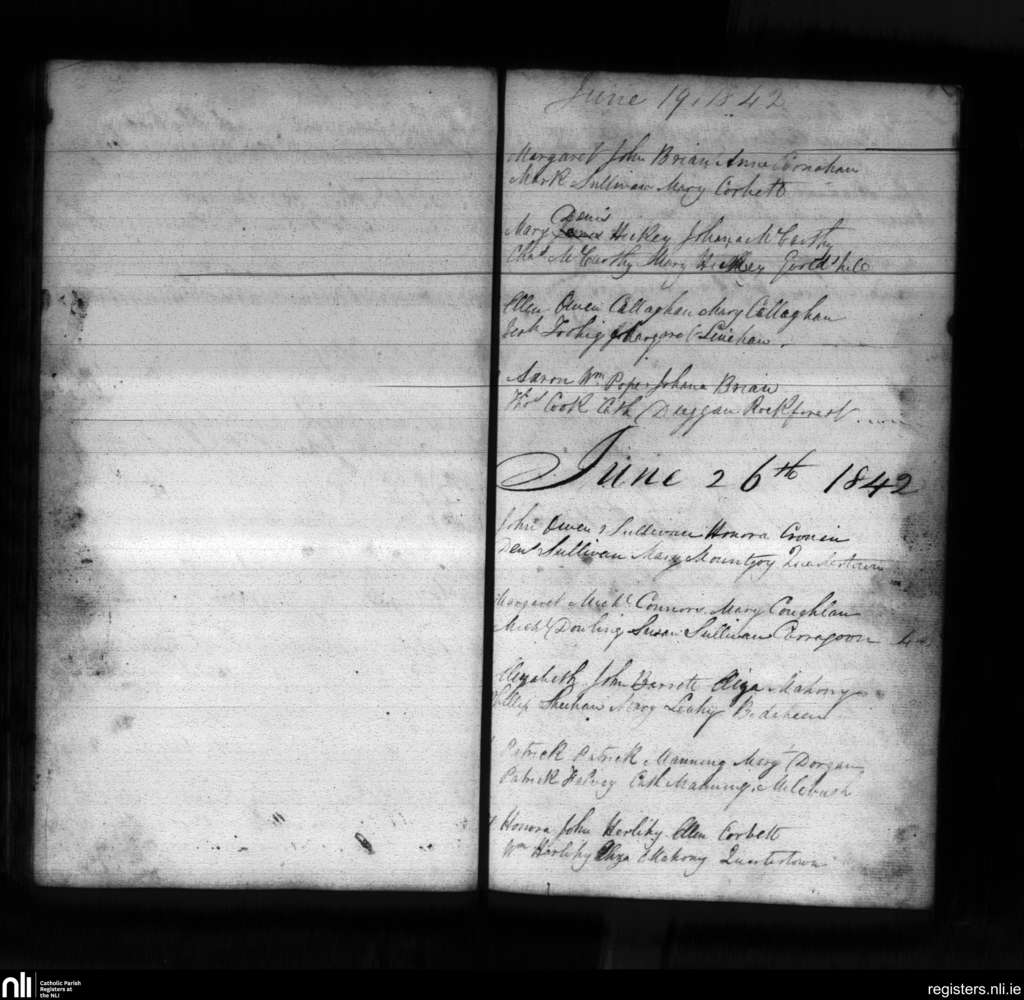 June 19, 1842
Margaret John Brian Anne
Mark Sullivan Mary Corbett
Denis
Mary Hickey Johana McCarthy
Chas McCarthy Mary Hickey
Ellen Owen Callaghan Mary Callaghan
Jerh Margaret Linehan
Aaron Wm Pope Johana Brian
Thos Cook Cath Duggan Rockforest
June 26th 1842
John Owen Sullivan Honora Cronin
Den Sullivan Mary Mountjoy Quartertown
Margaret Michl Connors Mary Coughlan
Michl Dowling Susan Sullivan Corragoon
Elizabeth John Barrett Eliza Mahony
Phillip Sheehan Mary Leahy
Patrick Patrick Manning Mary Dorgan
Patrick Cath Manning
Honora John Herlihy Ellen Corbett
Wm Herlihy Eliza Mahony Quartertown
nli
Catholic Parish
Registers at
the NLI
registers.nli.ie